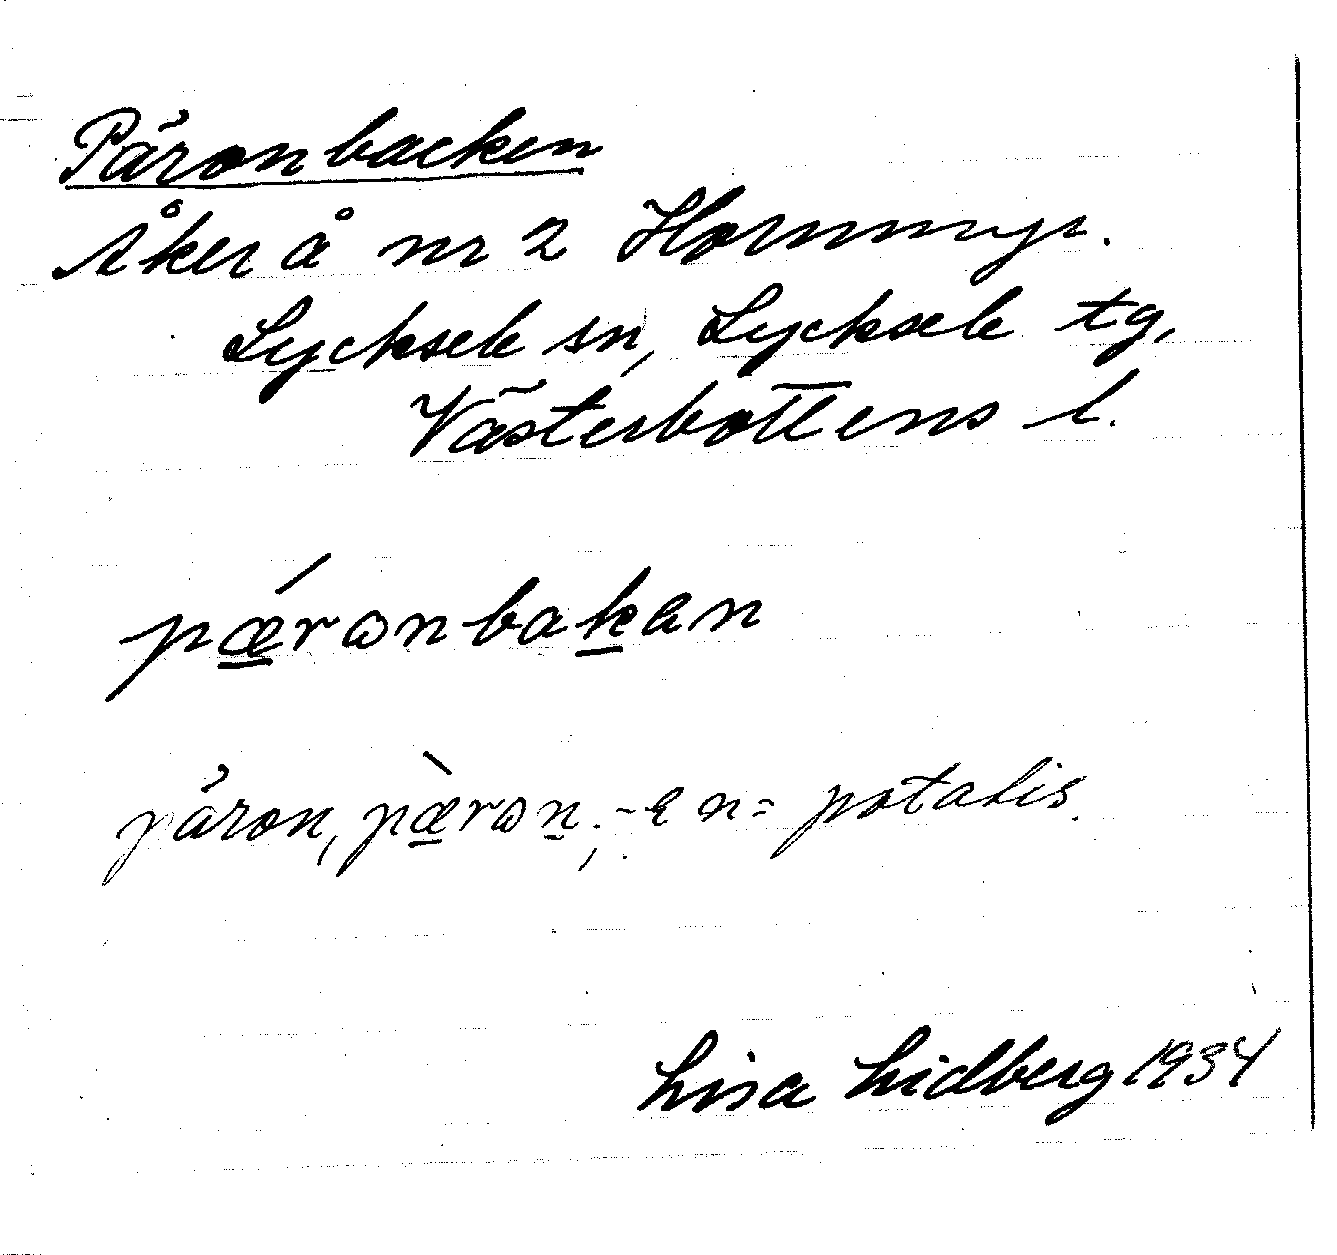 Päronbacken
Åker å nr 2 Hornmyr.
Lycksele sn, Lycksele tg,
Västerbottens l.
pǽronbakan
päron, pæ̀ron; -en = potatis.
Lisa Lidberg 1934